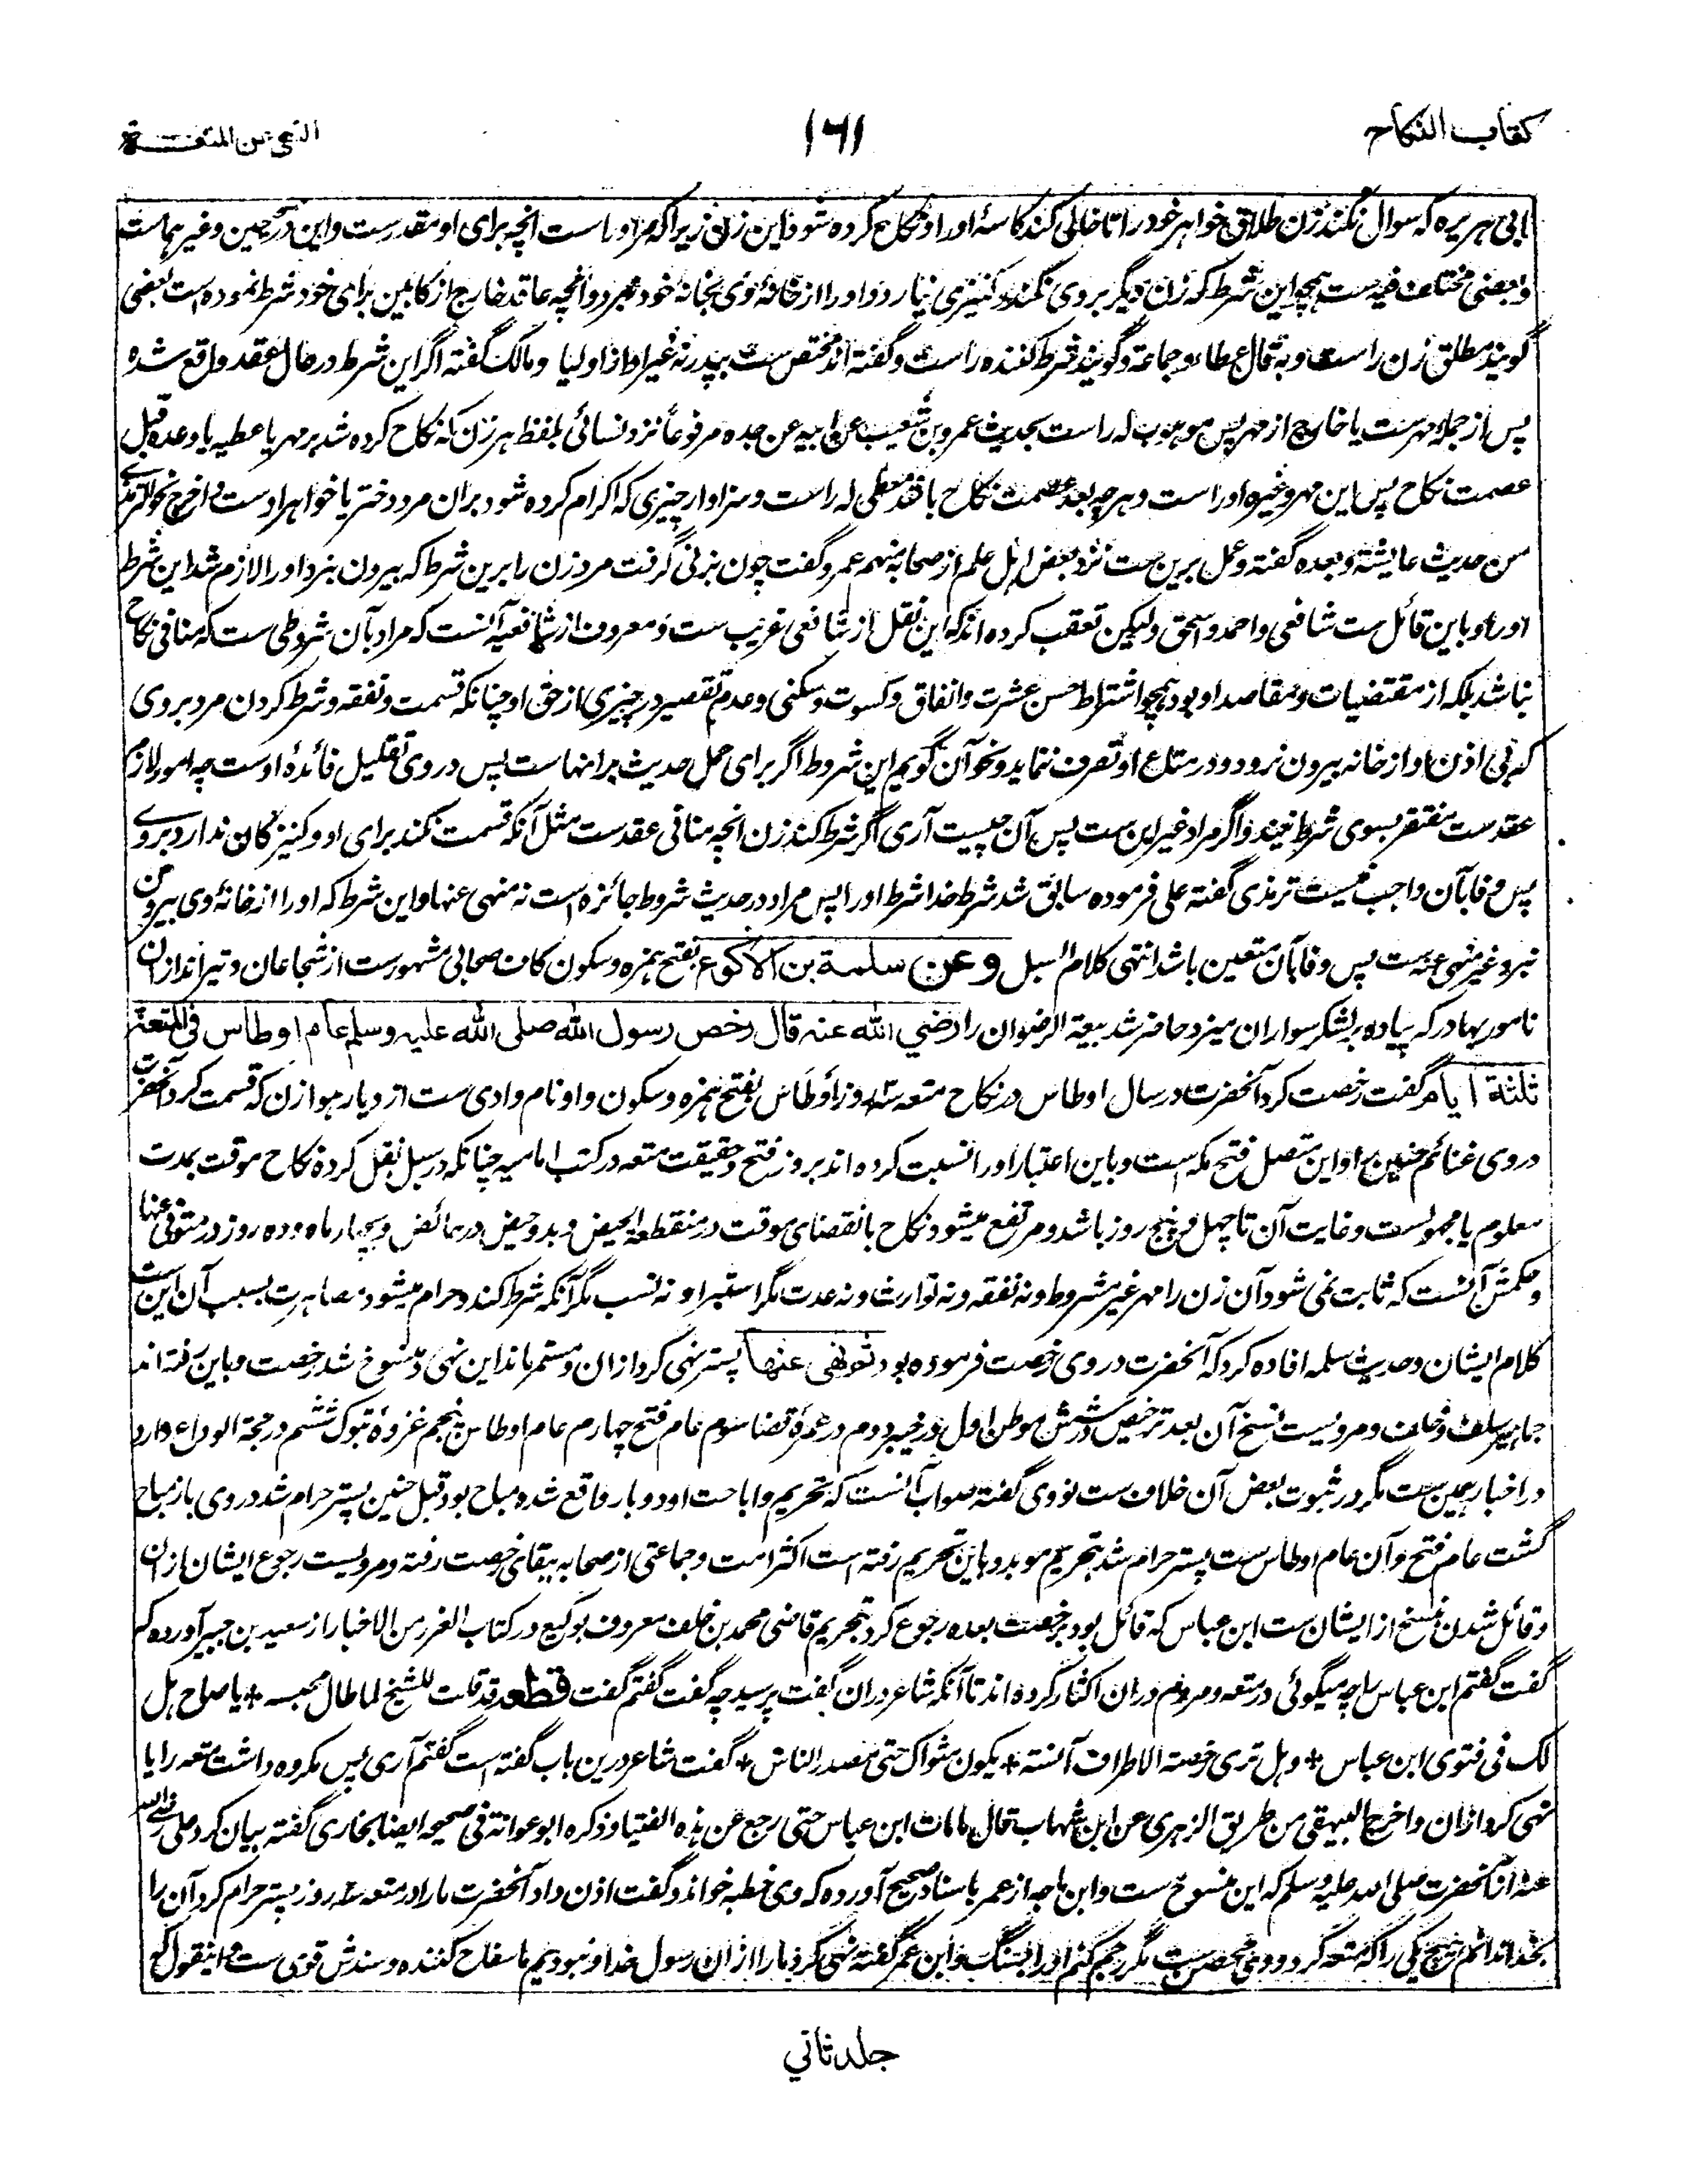 كتاب النكاح
۱۶۱
النهي عن المتعة
ابی هریره که سوال نکند زن طلاق خواهر خود را تا خالی کند کاسهٔ او را و نکاح کرده شود این زن زیرا که مر او راست انچه برای او مقدرست و این در صحیحین وغیرهماست
و بعضی مختلف فیه ست همچو این شرط که زن دیگر بر وی نکند و کنیزی نیارد و او را از خانهٔ وی بخانهٔ خود نبرد و انچه عاقد خارج از کابین برای خود شرط نموده است بعضی
گویند مطلق زن راست و به قال عطاء و جماعة و گویند شرط کننده راست و گفته اند مختص ست بپدر نه غیر او از اولیا و مالک گفته اگر این شرط در حال عقد واقع شده
پس از جملهٔ مهرست یا خارج از مهر پس موهوب له راست بحدیث عمرو بن شعیب عن ابیه عن جده مرفوعاً نزد نسائی بلفظ هر زن که نکاح کرده شد بر مهر یا عطیه یا وعده قبل
عصمت نکاح پس این مهر وغیره او راست و هر چه بعد عصمت نکاح باشد معطی له راست و سزاوار چیزی که اکرام کرده شود بران مرد دختر یا خواهر اوست و اخرج نحوه الترمذی
من حدیث عایشة و بعده گفته و عمل برین ست نزد بعض اهل علم از صحابه منهم عمر و گفت چون بزنی گرفت مرد زن را برین شرط که بیرون نبرد او را لازم شد این شرط
او را و باین قائل ست شافعی و احمد و اسحق ولیکن تعقب کرده اند که این نقل از شافعی غریب ست و معروف از شافعیه آنست که مراد بآن شروطی ست که منافی نکاح
نباشد بلکه از مقتضیات و مقاصد او بود همچو اشتراط حسن عشرت و انفاق و کسوت و سکنی و عدم تقصیر در چیزی از حق او چنانکه قسمت و نفقه و شرط کردن مرد بر وی
که بی اذن او از خانه بیرون نرود و در متاع او تصرف ننماید و نحو آن گویم این شروط اگر برای حمل حدیث بر انهاست پس در وی تقلیل فائدهٔ اوست چه امور لازم
عقدست مفتقر بسوی شرط نیند و اگر مراد غیر این ست پس آن چیست آری اگر شرط کند زن انچه منافی عقدست مثل آنکه قسمت نکند برای او و کنیزکان ندارد بر وے
پس وفا بآن واجب نیست ترمذی گفته علی فرموده سابق شد شرط خدا شرط او را پس مراد در حدیث شروط جائزه است نه منهی عنها و این شرط که او را از خانهٔ وی بیرون
نبرد غیر منهی عنه ست پس وفا بآن متعین باشد انتهی کلام السبل وعن سلمة بن الاکوع بفتح همزه و سکون کاف صحابی مشهورست از شجاعان و تیراندازان
نامور بهادر که پیاده بر لشکر سواران میزد حاضر شد بیعة الرضوان را رضي الله عنه قال رخص رسول الله صلى الله عليه وسلم عام اوطاس في المتعة
ثلثة ايام گفت رخصت کرد آنحضرت در سال اوطاس در نکاح متعه سه روز و اوطاس بفتح همزه و سکون واو نام وادی ست از دیار هوازن که قسمت کرد آنحضرت
در وی غنائم حنین را و این متصل فتح مکه است و باین اعتبار او را نسبت کرده اند بروز فتح و حقیقت متعه در کتب امامیه چنانکه در سبل نقل کرده نکاح موقت بمدت
معلوم یا مجهولست و غایت آن تا چهل و پنج روز باشد و مرتفع میشود نکاح بانقضای موقت در منقطعة الحیض و بدو حیض در حائض و بچهار ماه و ده روز در متوفی عنها
و حکمش آنست که ثابت نمی شود آن زن را مهر غیر مشروط و نه نفقه و نه توارث و نه عدت مگر استبرا و نه نسب مگر آنکه شرط کند و حرام میشود مصاهرت بسبب آن این ست
کلام ایشان و حدیث سلمه افاده کرد که آنحضرت در وی رخصت فرموده بود ثم نهی عنها پستر نهی کرد ازان و مستمر ماند این نهی و منسوخ شد رخصت و باین رفته اند
جماهیر سلف و خلف و مرویست نسخ آن بعد ترخیص در شش موطن اول در خیبر دوم در عمرهٔ قضا سوم عام فتح چهارم عام اوطاس پنجم غزوهٔ تبوک ششم در حجة الوداع وارد
در اخبار همین ست مگر در ثبوت بعض آن خلاف ست نووی گفته صواب آنست که تحریم و اباحت او دو بار واقع شده مباح بود قبل حنین پستر حرام شد در وی باز مباح
گشت عام فتح و آن عام اوطاس ست پستر حرام شد بتحریم موبد و باین تحریم رفته است اکثر امت و جماعتی از صحابه ببقای رخصت رفته و مرویست رجوع ایشان ازان
و قائل شدن بنسخ از ایشان ست ابن عباس که قائل بود برخصت بعده رجوع کرد بتحریم قاضی محمد بن خلف معروف بوکیع در کتاب الغرر من الاخبار از سعید بن جبیر آورده که
گفت گفتم ابن عباس را چه میگوئی در متعه و مردم دران اکثار کرده اند تا آنکه شاعر دران گفت پرسید چه گفت گفتم گفت قطعه قد قلت للشیخ لما طال محبسه + یا صاح هل
لک فی فتوی ابن عباس + و هل تری رخصة الاطراف آنسة + یکون مثواک حتی مصدر الناس + گفت شاعر درین باب گفته است گفتم آری پس مکروه داشت متعه را یا
نهی کرد ازان و اخرج البیهقی من طریق الزهری عن ابن شهاب قال ما مات ابن عباس حتی رجع عن هذه الفتیا و ذکره ابو عوانة فی صحیحه ایضا بخاری گفته بیان کرد علی رضی الله
عنه از آنحضرت صلی الله علیه وسلم که این منسوخ ست و ابن ماجه از عمر باسناد صحیح آورده که وی خطبه خواند و گفت اذن داد آنحضرت ما را در متعه سه روز پستر حرام کرد آن را
بخدا ندانم هیچ یکی را که متعه کرد و وی محصن ست مگر رجم کنم او را بسنگ و ابن عمر گفته نهی کرد ما را ازان رسول خدا و نبودیم ما سفاح کننده و سندش قوی ست و اینقول که
جلد ثاني